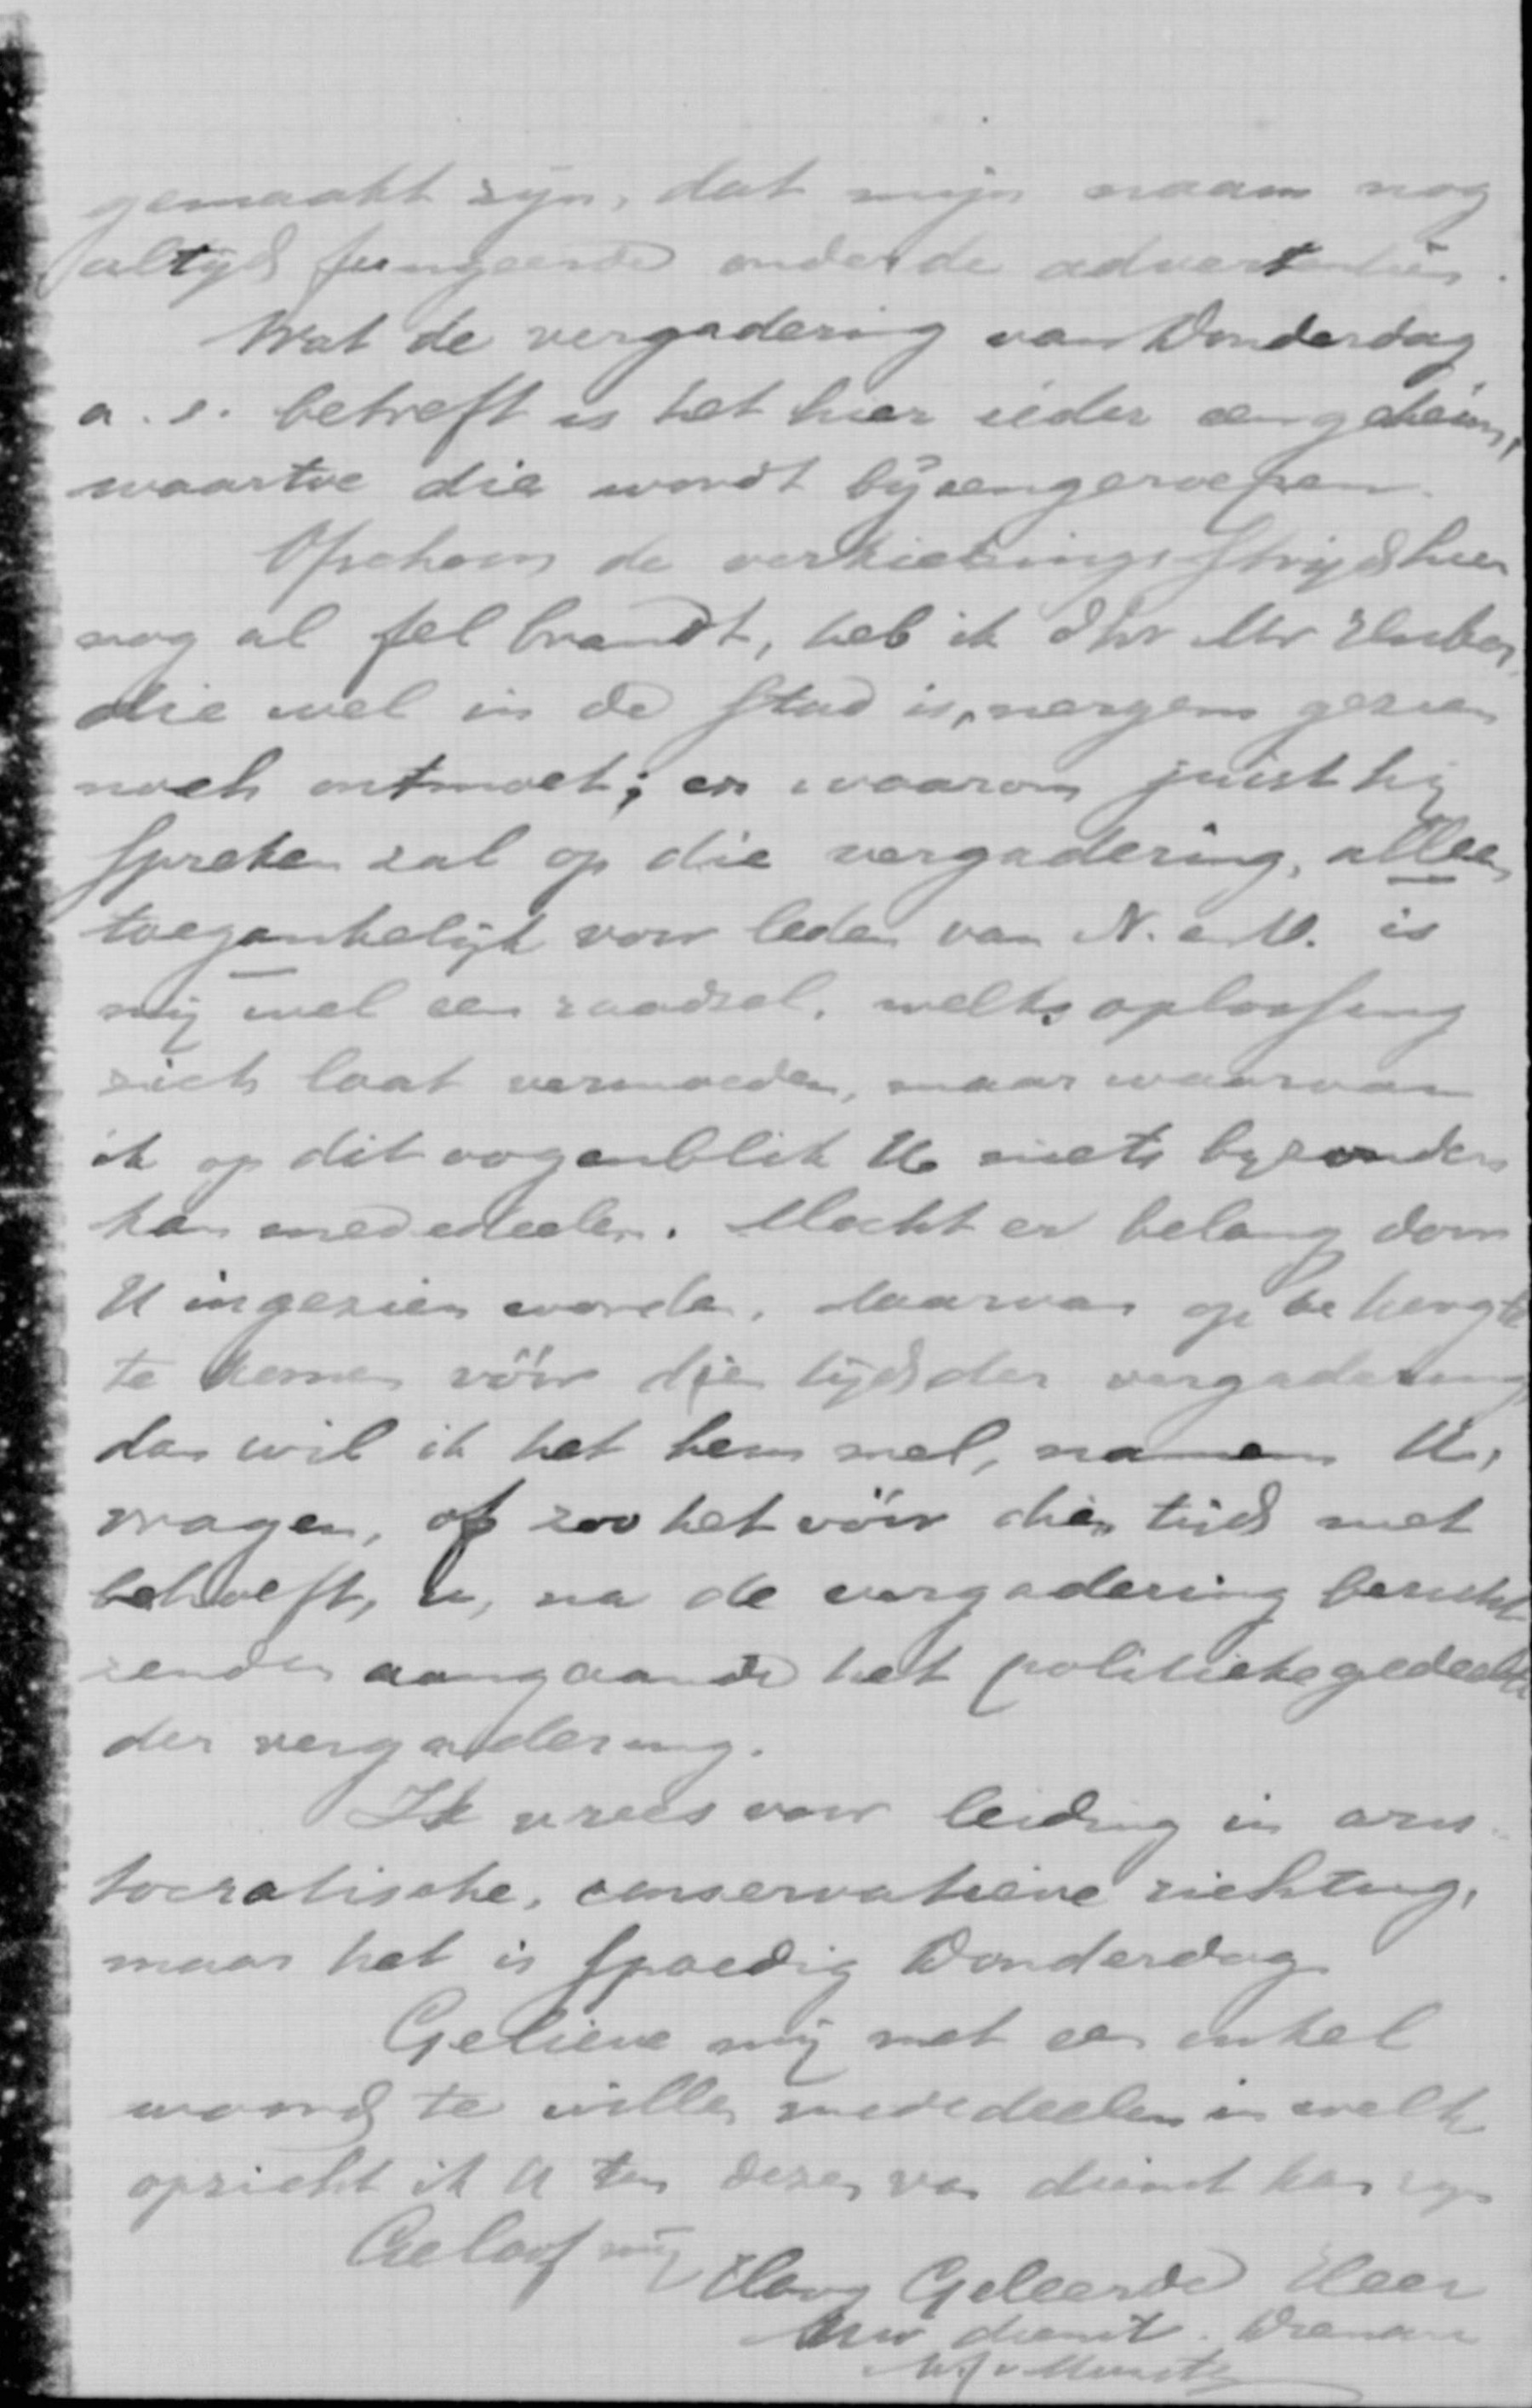 gemaakt zijn, dat mijn naam nog
altijd fungeerde onder de advertentiën.
Wat de vergadering van Donderdag
a.s. betreft is het hier ieder een geheim,
waartoe die wordt bijeengeroepen.
Ofschoon de verkiezingsstrijd hier
nog al fel brandt, heb ik dhr Mr
die wel in de stad is, nergens gezien
noch ontmoet; en waarom juist hij
spreken zal op die vergadering, alleen
toegankelijk voor leden van N. en V. is
mij wel een raadsel, welks oplossing
zich laat vermoeden, maar waarvan
ik op dit oogenblik U niets byzonders
kan mededeelen. Mocht er belang door
U ingezien worden, daarvan op de hoogte
te komen vóór dien tijd der vergadering
dan wil ik het hem wel, namens U,
vragen, of zoo het vóór dien tijd niet
behoeft, U, na de vergadering bericht
zenden aangaande het politieke gedeelte
der vergadering.
Ik vrees voor leiding in aris-
tocratische, conservatieve richting,
maar het is spoedig Donderdag
Gelieve mij met een enkel
woord te willen mededeelen in welk
opzicht ik U ten dezen van dienst kan zijn
Geloof mij
Hoog Geleerde Heer
Uw dienst. Dienaar